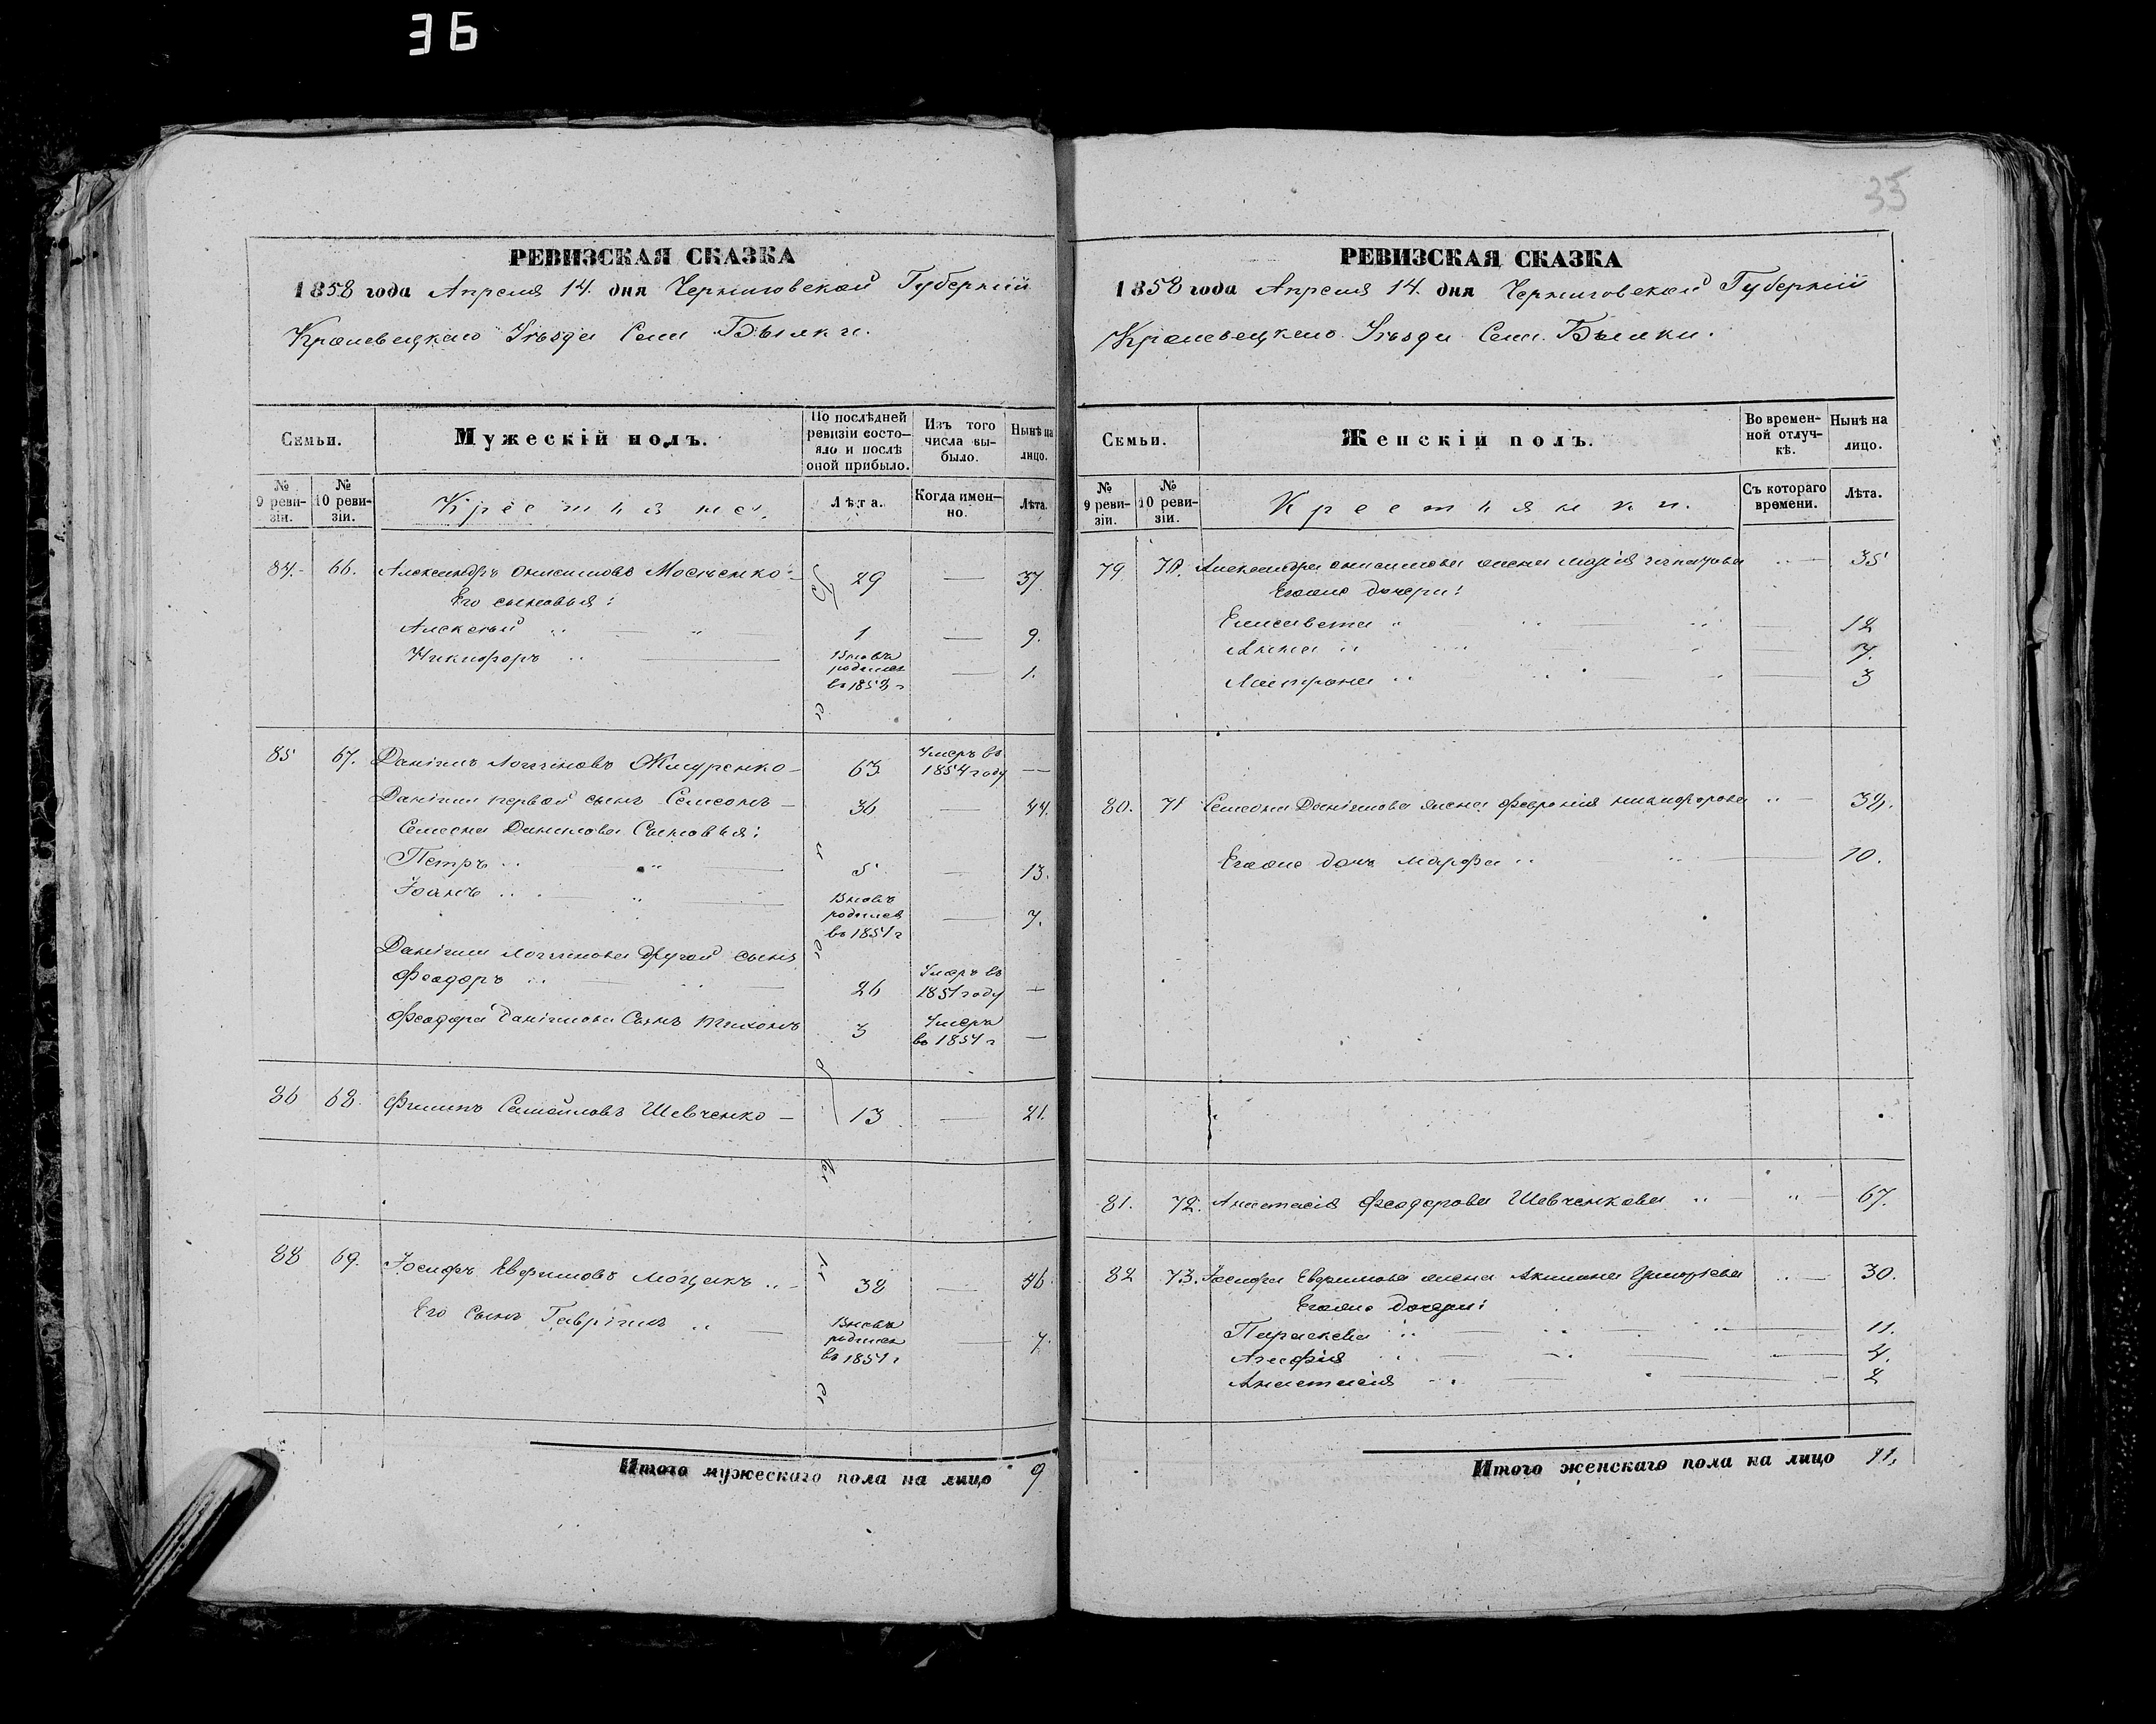 36
35
РЕВИЗСКАЯ СКАЗКА
1858 года Апреля 14. дня Черниговской Губерніи
Кролевецкаго Уѣзда Села Бѣлки.
Семьи.
Мужескій полъ.
По послѣдней ревизіи состо-
яло и послѣ
оной прибыло.
Изъ того
числа вы-
было.
Нынѣ на
лицо.
№
9 реви-
зіи.
№
10 реви-
зіи.
Крестьяне.
Лѣта.
Когда имен-
но.
Лѣта.
84. 66. Александръ Онисимовъ 29 — 37.
Его сыновья:
Алексѣй 1 — 9.
Никифоръ Вновь родился въ 1858 г — 1.
85 67. Даніилъ Логгиновъ Жмуренко — 63 Умеръ въ 1854 году —
Даніила первой сынъ Семеонъ — 36 — 44.
Семеона Данилова Сыновья:
Петръ 5 — 13.
Іоанъ Вновь родился въ 1851 г — 7.
Даніила Логгинова другой сынъ
Феодоръ 26 Умеръ въ 1851 году —
Феодора Даніилова Сынъ Тихонъ 3 Умеръ въ 1851 г —
86 68. Филипъ Самойловъ Шевченко — 13 — 21.
88 69. Іосифъ Евфимовъ 38 — 46.
Его Сынъ Гавріилъ Вновь родился въ 1851 г — 7.
Итого мужескаго пола на лицо 9
РЕВИЗСКАЯ СКАЗКА
1858 года Апреля 14. дня Черниговской Губерніи
Кролевецкаго Уѣзда Села Бѣлки.
Семьи.
Женскій полъ.
Во времен-
ной отлуч-
кѣ.
Нынѣ на
лицо.
№
9 реви-
зіи.
№
10 реви-
зіи.
Крестьянки.
Съ котораго
времени.
Лѣта.
79 70. Александра Онисимова жена Марія Игнатова — 35
Егоже дочери:
Елисавета 12
Анна 7.
3
80. 71 Семеона Даніилова жена Феvронія Никифорова —
Егоже дочь Марфа 10.
81. 72. Анастасія Феодорова Шевченкова — 67.
82 73. Іосифа Евфимова жена Акилина Григорьева — 30.
Егоже дочери:
Параскева 11.
Агафія 4.
Анастасія 2
Итого женскаго пола на лицо 11.